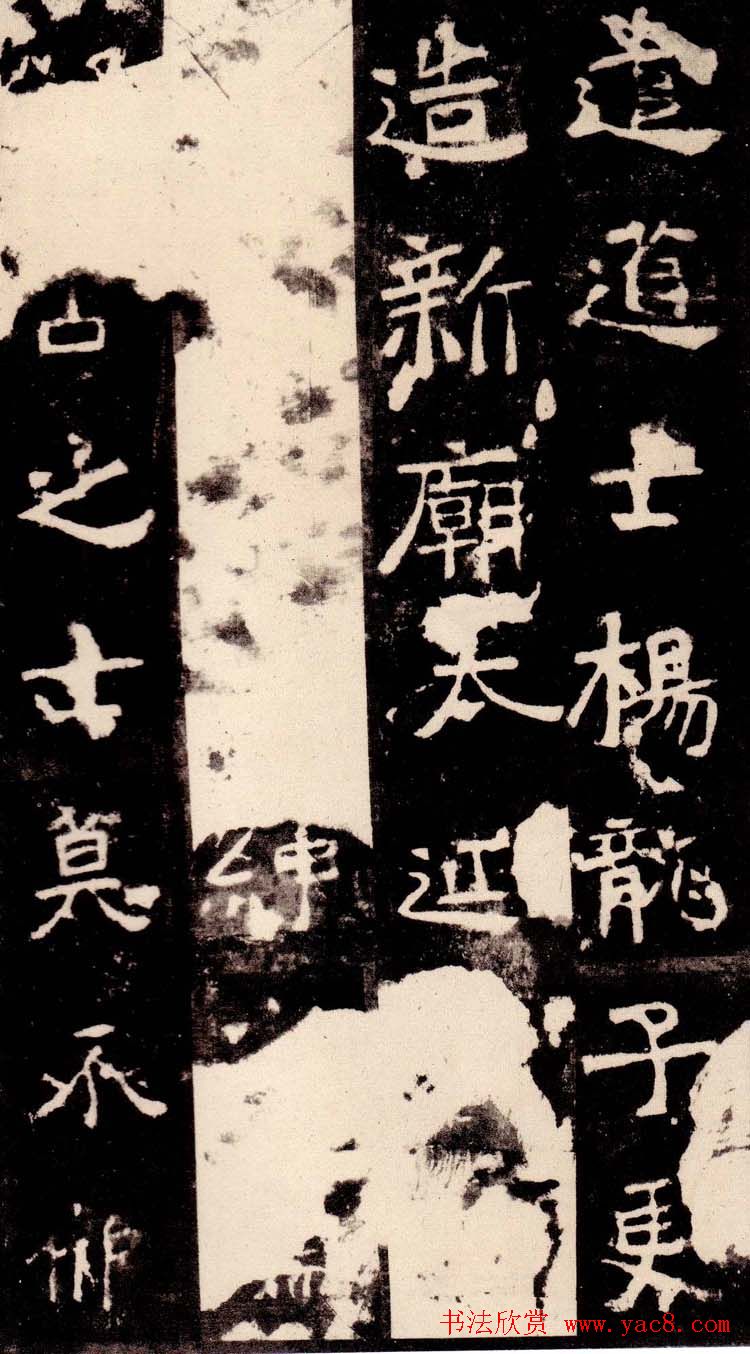 遣道士楊龍子更
造新廟太延
紳
古之士莫不仰
书法欣赏 www.yac8.com